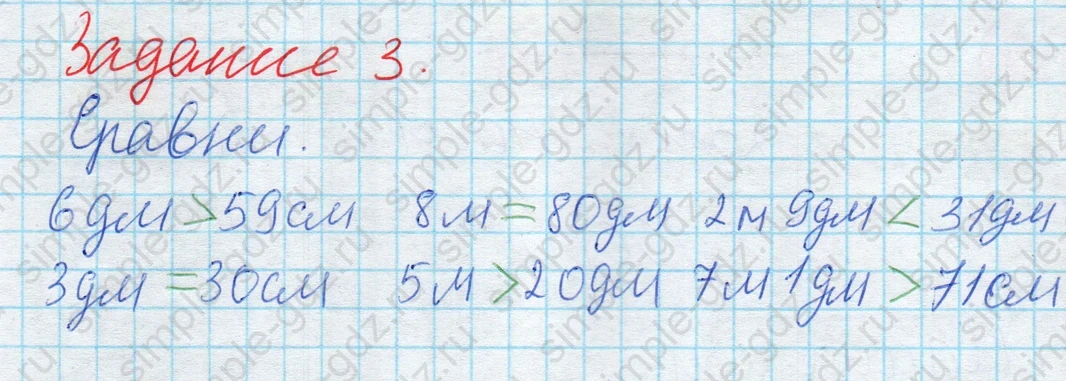 Задание 3.
Сравни.
6дм > 59см 8м = 80дм 2м 9дм < 31дм
3дм = 30см 5м > 20дм 7м 1дм > 71см
simple-gdz.ru